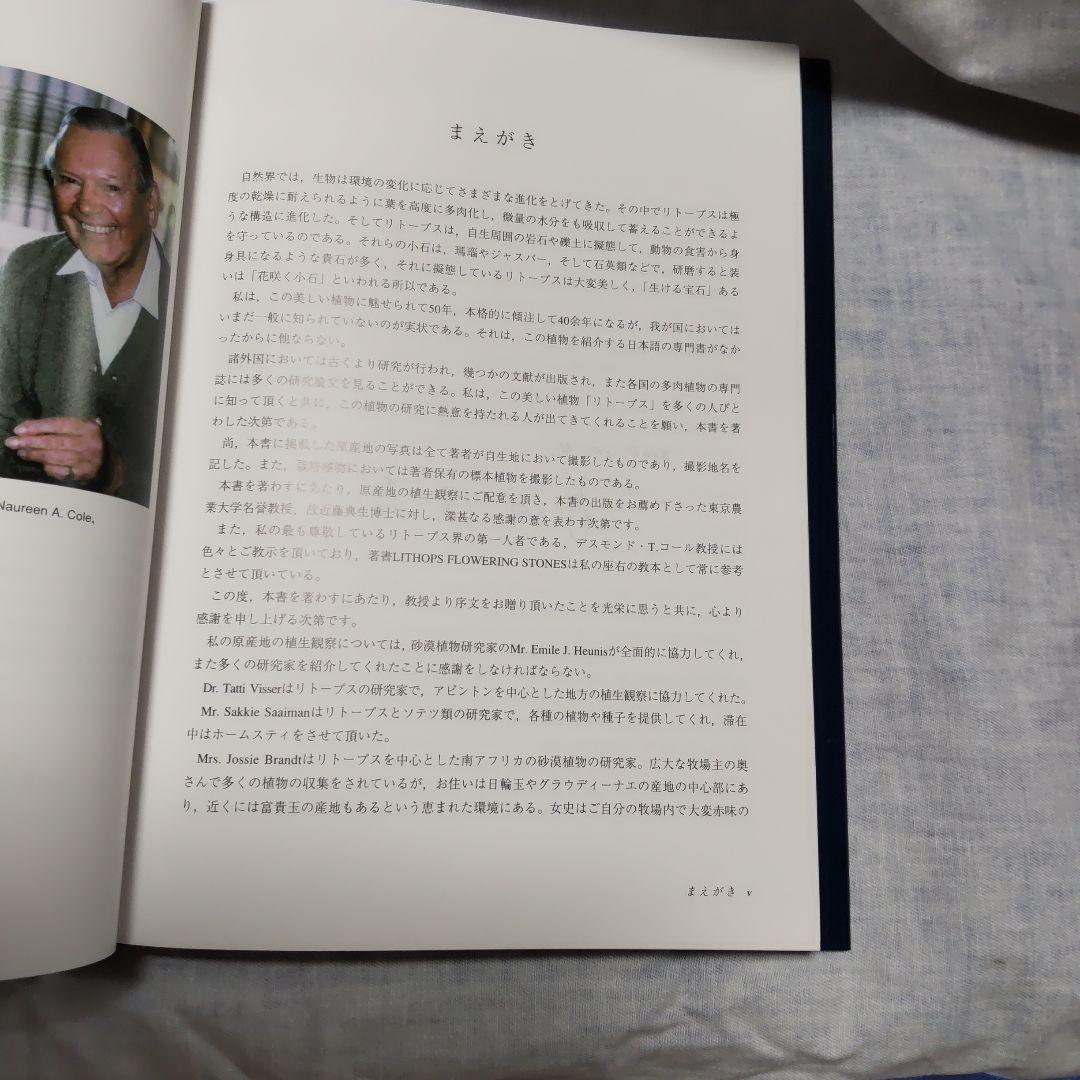 Naureen A. Cole,
まえがき
自然界では，生物は環境の変化に応じてさまざまな進化をとげてきた。その中でリトープスは極
度の乾燥に耐えられるように葉を高度に多肉化し，微量の水分をも吸収して蓄えることができるよ
うな構造に進化した。そしてリトープスは，自生周囲の岩石や礫土に擬態して，動物の食害から身
を守っているのである。それらの小石は，瑪瑙やジャスパー，そして石英類などで，研磨すると装
身具になるような貴石が多く，それに擬態しているリトープスは大変美しく，「生ける宝石」ある
いは「花咲く小石」といわれる所以である。
私は，この美しい植物に魅せられて50年，本格的に傾注して40余年になるが，我が国においては
いまだ一般に知られていないのが実状である。それは，この植物を紹介する日本語の専門書がなか
ったからに他ならない。
諸外国においては古くより研究が行われ，幾つかの文献が出版され，また各国の多肉植物の専門
誌には多くの研究論文を見ることができる。私は，この美しい植物「リトープス」を多くの人びと
に知って頂くと共に，この植物の研究に熱意を持たれる人が出てきてくれることを願い，本書を著
わした次第である。
尚，本書に掲載した原産地の写真は全て著者が自生地において撮影したものであり，撮影地名を
記した。また，栽培植物においては著者保有の標本植物を撮影したものである。
本書を著わすにあたり，原産地の植生観察にご配意を頂き，本書の出版をお薦め下さった東京農
業大学名誉教授，故近藤典生博士に対し，深甚なる感謝の意を表わす次第です。
また，私の最も尊敬しているリトープス界の第一人者である，デスモンド・T.コール教授には
色々とご教示を頂いており，著書LITHOPS FLOWERING STONESは私の座右の教本として常に参考
とさせて頂いている。
この度，本書を著わすにあたり，教授より序文をお贈り頂いたことを光栄に思うと共に，心より
感謝を申し上げる次第です。
私の原産地の植生観察については，砂漠植物研究家のMr. Emile J. Heunisが全面的に協力してくれ，
また多くの研究家を紹介してくれたことに感謝をしなければならない。
Dr. Tatti Visserはリトープスの研究家で，アピントンを中心とした地方の植生観察に協力してくれた。
Mr. Sakkie Saaimanはリトープスとソテツ類の研究家で，各種の植物や種子を提供してくれ，滞在
中はホームスティをさせて頂いた。
Mrs. Jossie Brandtはリトープスを中心とした南アフリカの砂漠植物の研究家。広大な牧場主の奥
さんで多くの植物の収集をされているが，お住いは日輪玉やグラウディーナエの産地の中心部にあ
り，近くには富貴玉の産地もあるという恵まれた環境にある。女史はご自分の牧場内で大変赤味の
まえがき v